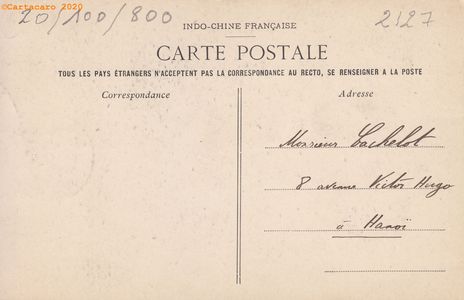 ©Cartacaro 2020
20/100/800
2127
INDO-CHINE FRANÇAISE
CARTE POSTALE
TOUS LES PAYS ÉTRANGERS N'ACCEPTENT PAS LA CORRESPONDANCE AU RECTO, SE RENSEIGNER A LA POSTE
Correspondance
Adresse
Monsieur Cachelot
8 avenue Victor Hugo
à Hanoï